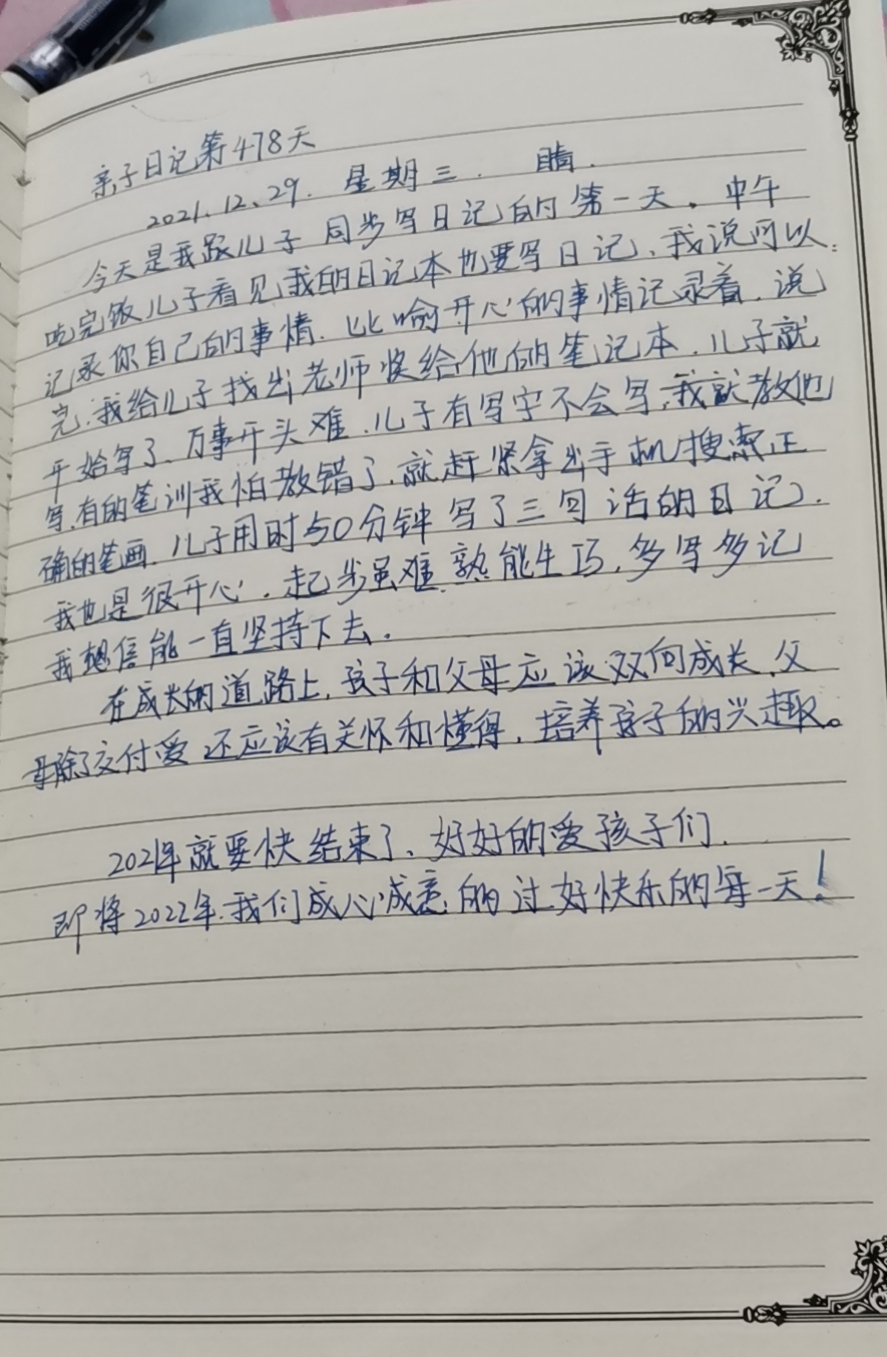 亲子日记第478天
2021.12.29. 星期三. 晴.
今天是我跟儿子同步写日记的第一天。中午
吃完饭儿子看见我的日记本也要写日记、我说可以.
记录你自己的事情.比喻开心的事情记录着.说
完.我给儿子找出老师奖给他的笔记本.儿子就
开始写了、万事开头难.儿子有写字不会写.我就教他
写.有的笔训我怕教错了.就赶紧拿出手机搜索正
确的笔画.儿子用时50分钟写了三句话的日记.
我也是很开心.起步虽难.熟能生巧.多写多记
我想信能一直坚持下去.
在成长的道路上.孩子和父母应该双向成长.父
母除了交付爱还应该有关怀和懂得.培养孩子的兴趣。
2021年就要快结束了、好好的爱孩子们.
即将2022年.我们成心成意的过好快乐的每一天!